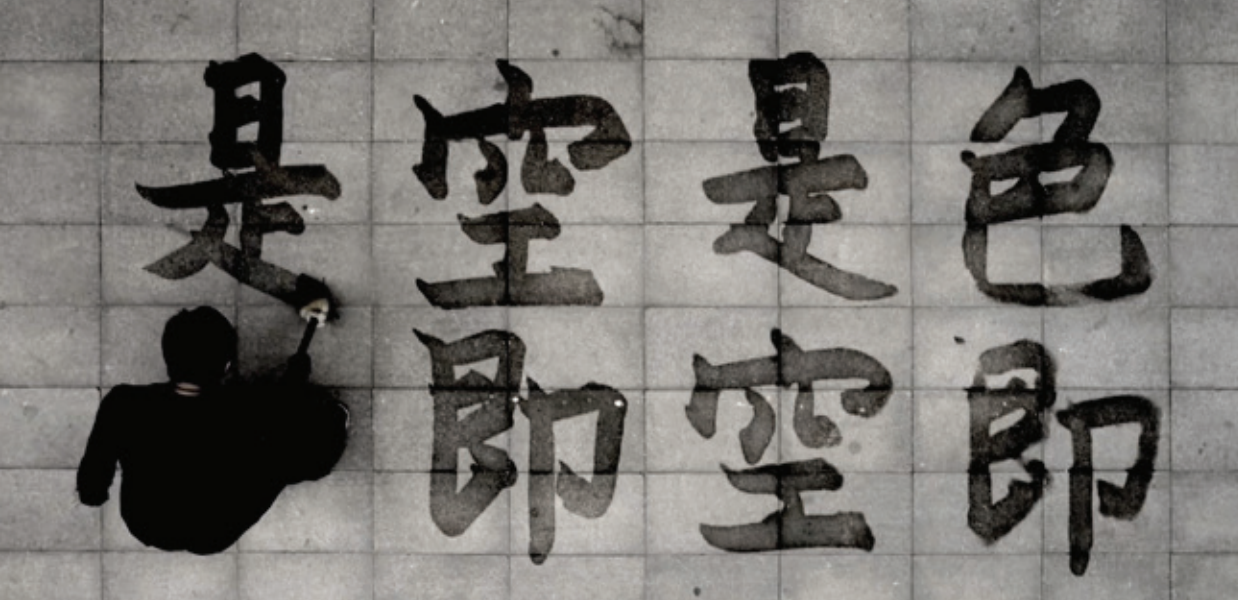 色即
是空
空即
是